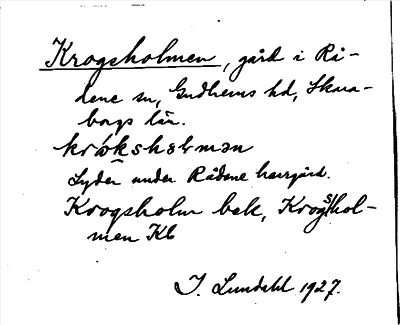 Krogsholmen, gård i Rå-
dene sn, Gudhems hd, Skara-
borgs län.
krωksholmən
Lyder under Rådene herrgård.
Krogsholm bek, Krogshol-
men Kb
I. Lundahl 1927.